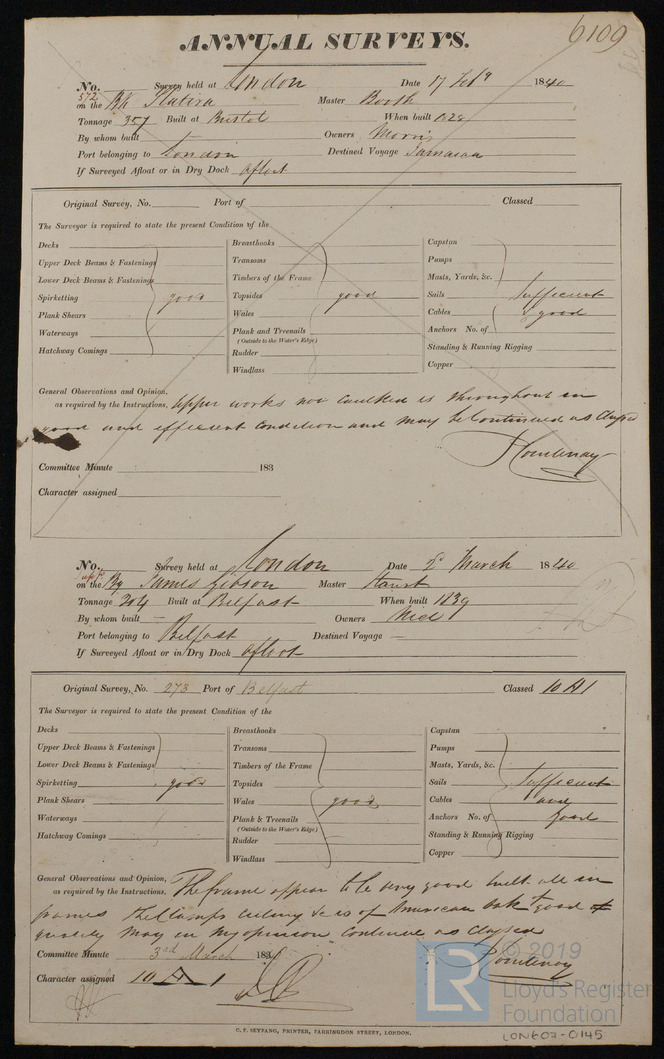 6109
ANNUAL SURVEYS.
No. 572 Survey held at London Date 17 Feby 1840
on the Bk Master Booth
Tonnage 357 Built at Bristol When built
By whom built Owners Morris
Port belonging to London Destined Voyage Jamaica
If Surveyed Afloat or in Dry Dock afloat
Original Survey, No. Port of Classed
The Surveyor is required to state the present Condition of the
Decks
Upper Deck Beams & Fastenings
Lower Deck Beams & Fastenings
Spirketting good
Plank Shears
Waterways
Hatchway Comings
Breasthooks
Transoms
Timbers of the Frame
Topsides good
Wales
Plank and Treenails
(Outside to the Water's Edge)
Rudder
Windlass
Capstan
Pumps
Masts, Yards, &c.
Sails Sufficient
Cables & good
Anchors No. of
Standing & Running Rigging
Copper
General Observations and Opinion,
as required by the Instructions, Upper works now caulked is throughout in
good and efficient condition and may be Continued as Classed
Courtenay
Committee Minute 183
Character assigned
No. Survey held at London Date 2d March 1840
on the Bg James Gibson Master
Tonnage 204 Built at Belfast When built 1839
By whom built — Owners
Port belonging to Belfast Destined Voyage —
If Surveyed Afloat or in Dry Dock afloat
Original Survey, No. 273 Port of Belfast Classed 10 A1
The Surveyor is required to state the present Condition of the
Decks
Upper Deck Beams & Fastenings
Lower Deck Beams & Fastenings
Spirketting good
Plank Shears
Waterways
Hatchway Comings
Breasthooks
Transoms
Timbers of the Frame
Topsides
Wales good
Plank & Treenails
(Outside to the Water's Edge)
Rudder
Windlass
Capstan
Pumps
Masts, Yards, &c.
Sails Sufficient
Cables and
Anchors No. of good
Standing & Running Rigging
Copper
General Observations and Opinion,
as required by the Instructions, The frame appear to be very good built all in
frames The Clamps &c is of American Oak good
quality May in my opinion Continue as Classed
Courtenay
Committee Minute 3rd March 183
Character assigned 10 A 1
© 2019
LR
Lloyd's Register
Foundation
C. F. SEYFANG, PRINTER, FARRINGDON STREET, LONDON.
LON602-0145